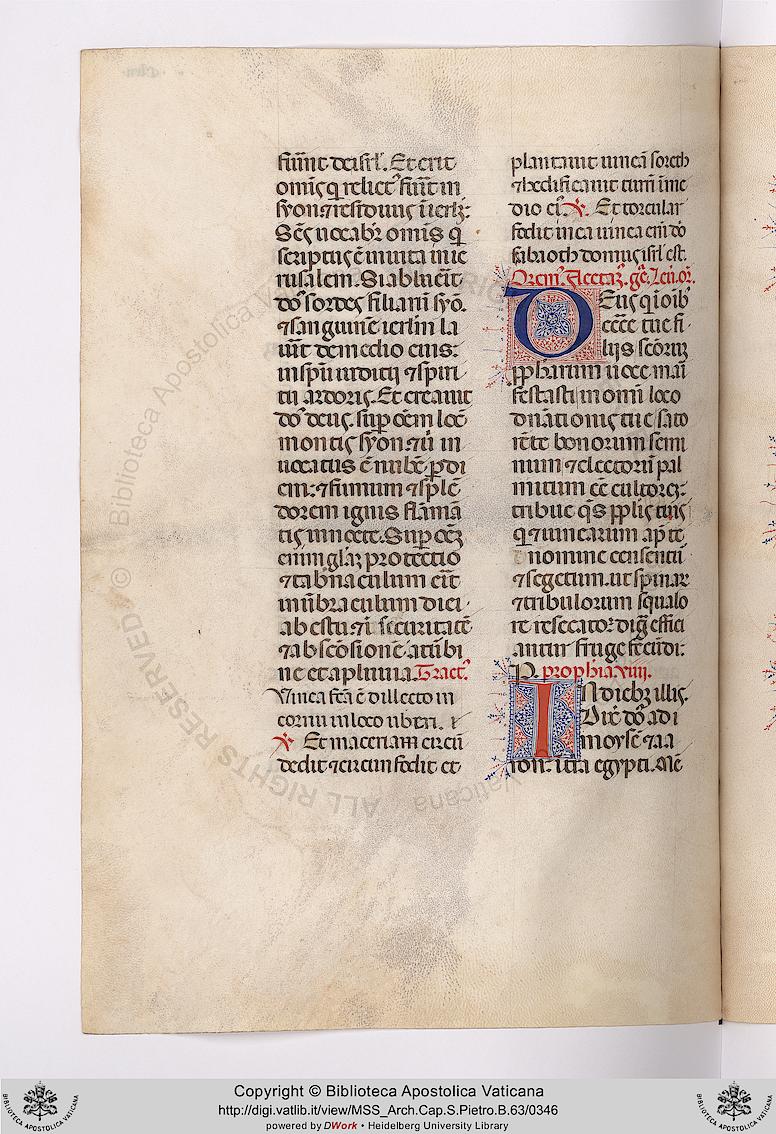 fu̅int de isrł. Et erit
om̅is q̇ relict᷒ fu̅it in
syon ⁊ residuus i̅ ierłz:
Sc̅s uocabr̃ om̅is q̇
scriptus e̅ i̅ uita in ie
rusalem. Si abluerit
do᷒ sordes filiaru̅ syo̅.
⁊ sanguine̅ ierlm la
uit̃ de medio eius:
in spu̅ iuditii ⁊ spiri
tu ardoris. Et creauit
do᷒ deus. sup̱ oc̅m loc̅
montis syon ⁊ ubi in
uocatus e̅ nube̅ p̱ di
em: ⁊ fumum ⁊ sple̅
dorem ignis fla̅ma̅
tis in nocte. Sup̱ oc̅z
enim gła̅z protectio
⁊ tab̃naculum erit
in u̅braculum diei
ab estu. ⁊ i̅ securitate̅
⁊ absco̅sione̅ a turbi
ne et a pluuia. Tract᷒.
Vinea fc̅a e̅ dillecto in
cornu in loco uberi.
℣ Et maceriam circu̅
dedit ⁊ circumfodit et
plantauit uinea̅ soreth
⁊ hedificauit turri̅ i̅ me
dio ei᷒. ℣ Et torcular
fodit in ea uinea eni̅ do̅
sabaoth domus isrł est.
Orem᷒. Flectaz̅. ge̅. Leu. or̃.
Deus q̇ i oi̅b
ecc̅e tue fi
lijs sc̅orum
ppharum uoce ma̅i
festasti in omni loco
dn̅ationis tue sato
re̅ te bonorum semi
num ⁊ electoru̅ pal
mitum ee̅ cultorez:
tribue q̅s pplis tuis
q̇ ⁊ uinearum ap̱ te
nomine censentu̅
⁊ segetum. ut spinar
⁊ tribulorum squalo
re resecato᷒ dig̅ effici
antur fruge fecu̅di:
P. prophia uiiii.
In dieb᷒ illis.
Dix̅ do̅s ad
moyse̅ ⁊ aa
ron: i̅ t̃ra egypti. Me̅
Copyright © Biblioteca Apostolica Vaticana
http://digi.vatlib.it/view/MSS_Arch.Cap.S.Pietro.B.63/0346
powered by DWork • Heidelberg University Library
BIBLIOTECA APOSTOLICA VATICANA
BIBLIOTECA APOSTOLICA VATICANA
© Biblioteca Apostolica Vaticana
ALL RIGHTS RESERVED